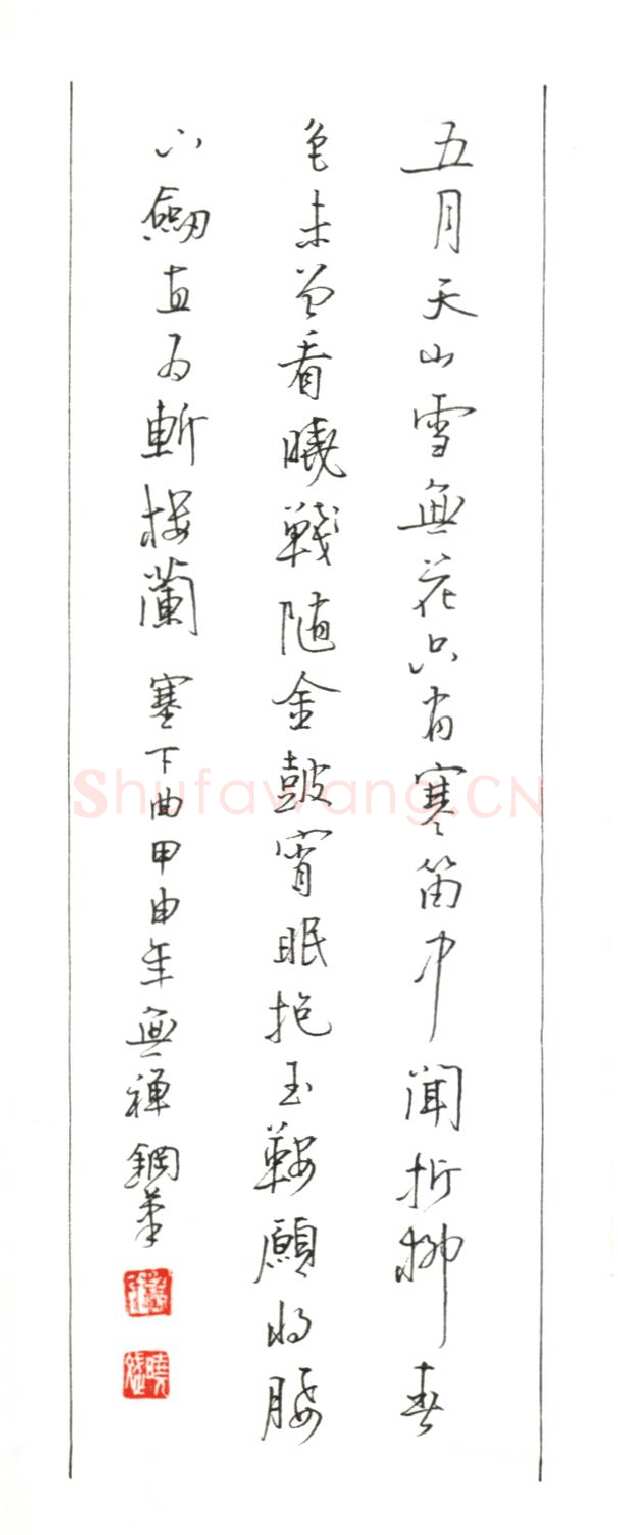 五月天山雪無花只有寒笛中聞折柳春
色未曾看曉戰随金鼓宵眠抱玉鞍願将腰
下劒直为斬楼蘭 塞下曲甲申年無禪鋼筆
Shufawang.CN